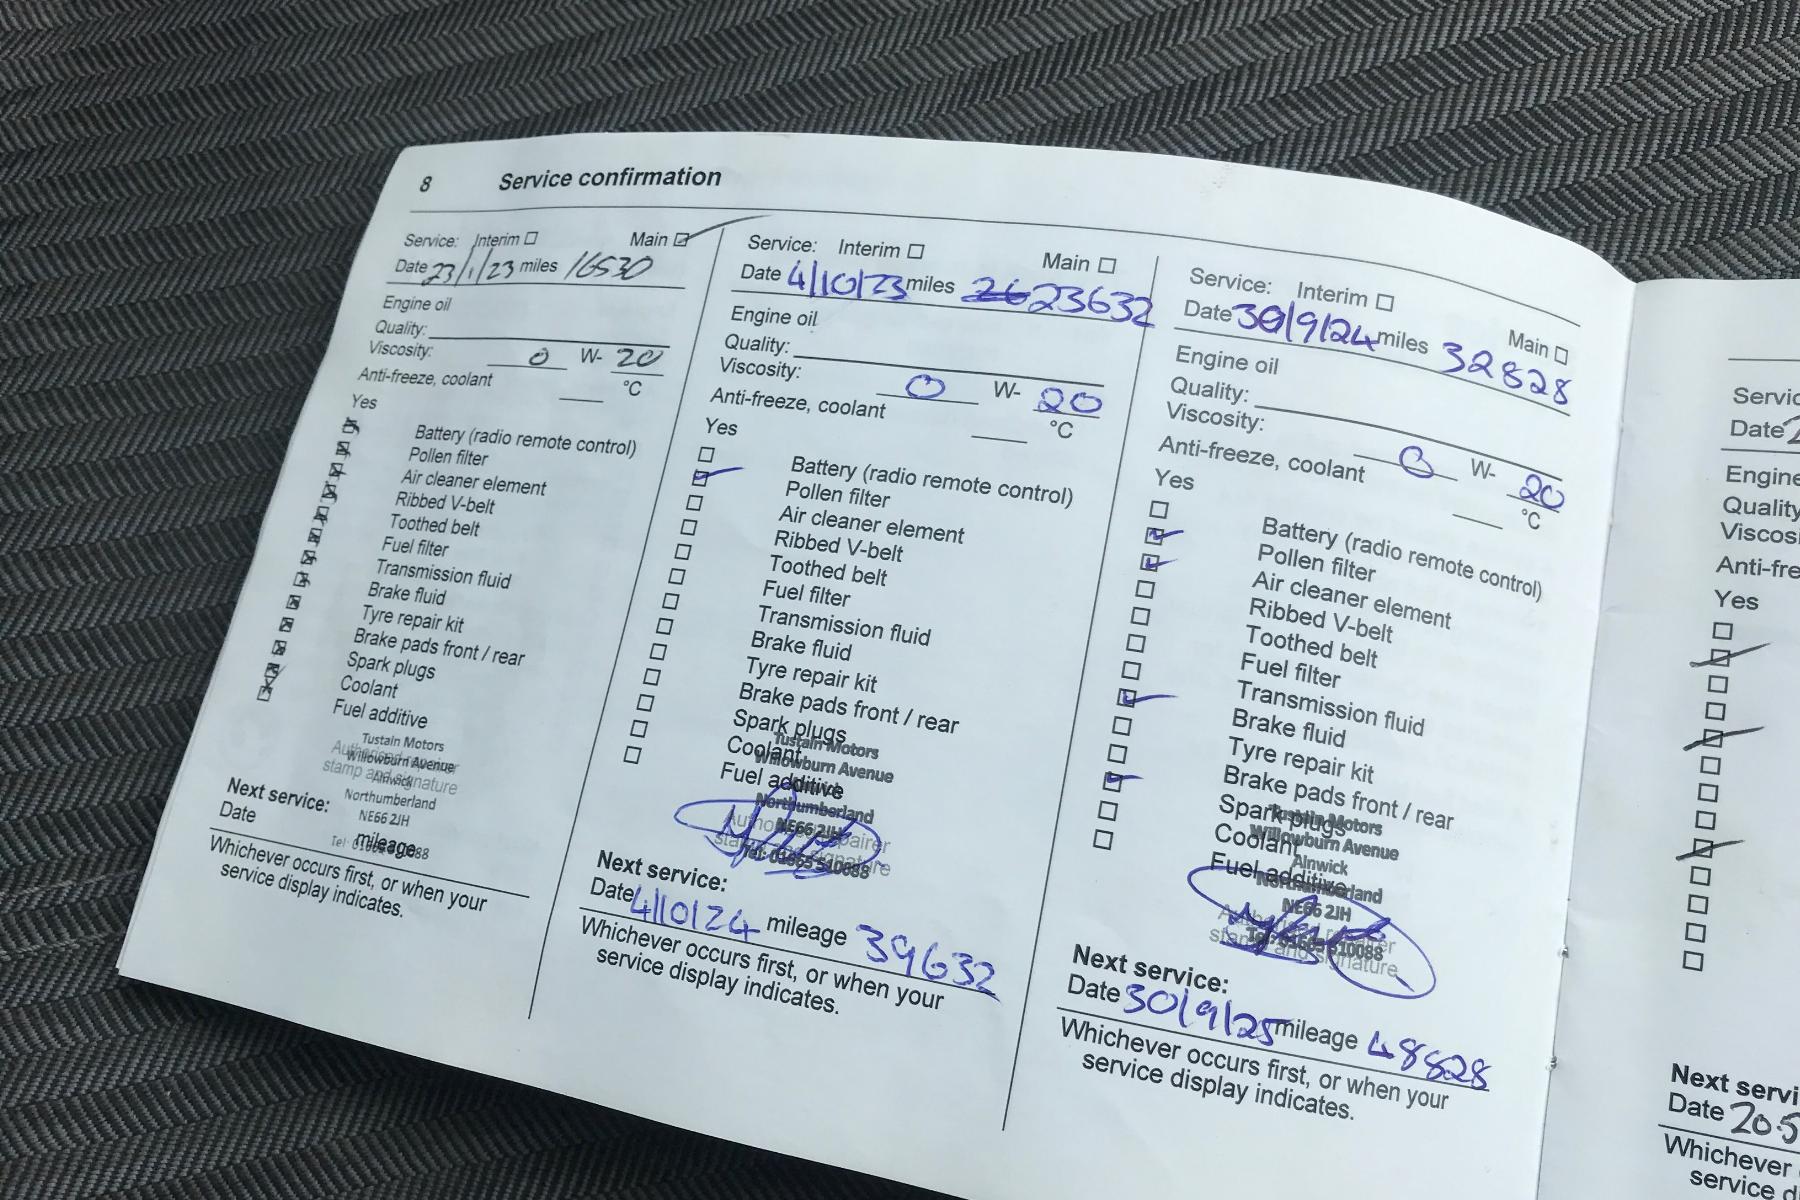 8 Service confirmation
Service: Interim Main
Date 23/1/23 miles 16530
Engine oil
Quality:
Viscosity: 0 W- 20
Anti-freeze, coolant °C
Yes
Battery (radio remote control)
Pollen filter
Air cleaner element
Ribbed V-belt
Toothed belt
Fuel filter
Transmission fluid
Brake fluid
Tyre repair kit
Brake pads front / rear
Spark plugs
Coolant
Fuel additive
Tustain Motors
Authorised repairer
Willowburn Avenue
stamp and signature
Alnwick
Northumberland
NE66 2JH
Next service:
Date mileage
Whichever occurs first, or when your
service display indicates.
Service: Interim Main
Date 4/10/23 miles 23632
Engine oil
Quality:
Viscosity: 0 W- 20
Anti-freeze, coolant °C
Yes
Battery (radio remote control)
Pollen filter
Air cleaner element
Ribbed V-belt
Toothed belt
Fuel filter
Transmission fluid
Brake fluid
Tyre repair kit
Brake pads front / rear
Spark plugs
Tustain Motors
Coolant
Willowburn Avenue
Fuel additive
Alnwick
Northumberland
NE66 2JH
Authorised repairer
stamp and signature
Tel: 01665 510088
Next service:
Date 4/10/24 mileage 39632
Whichever occurs first, or when your
service display indicates.
Service: Interim Main
Date 30/9/24 miles 32828
Engine oil
Quality:
Viscosity: 0 W- 20
Anti-freeze, coolant °C
Yes
Battery (radio remote control)
Pollen filter
Air cleaner element
Ribbed V-belt
Toothed belt
Fuel filter
Transmission fluid
Brake fluid
Tyre repair kit
Brake pads front / rear
Spark plugs
Tustain Motors
Coolant
Willowburn Avenue
Alnwick
Fuel additive
Northumberland
NE66 2JH
Authorised repairer
Tel: 01665 510088
stamp and signature
Next service:
Date 30/9/25 mileage 48828
Whichever occurs first, or when your
service display indicates.
Servic
Date
Engine
Quality
Viscosi
Anti-fre
Yes
Next servi
Date 20.5
Whichever
service d